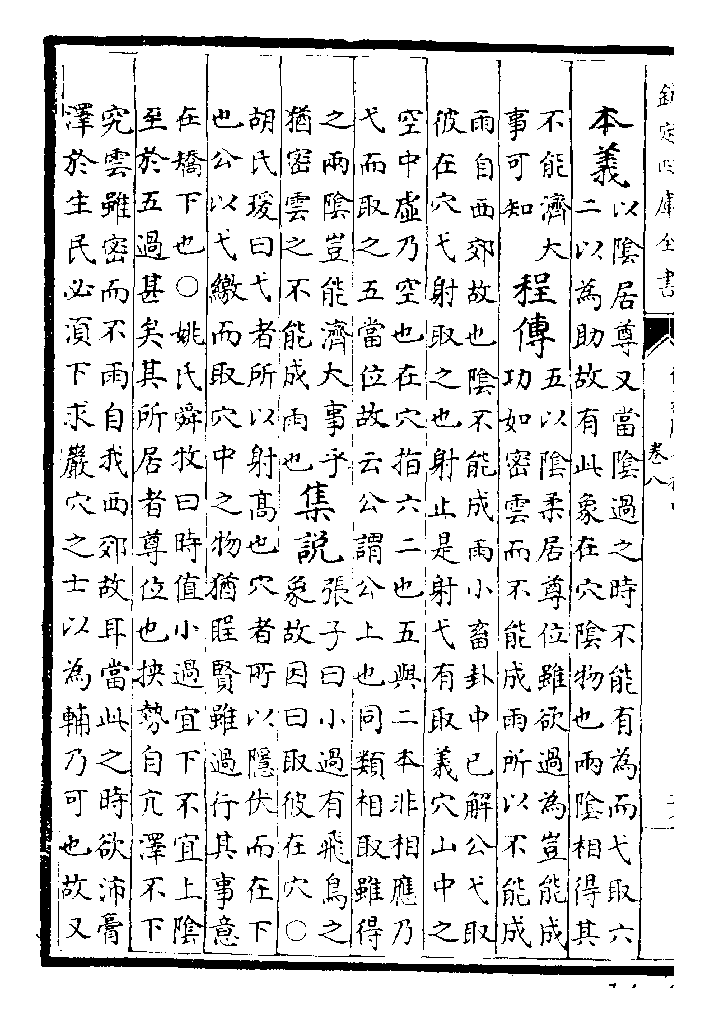 欽定四庫全書
卷八
本義以陰居尊又當陰過之時不能有為而弋取六
二以為助故有此象在穴陰物也兩陰相得其
不能濟大
事可知程傳五以陰柔居尊位雖欲過為豈能成
功如密雲而不能成雨所以不能成
雨自西郊故也陰不能成雨小畜卦中已解公弋取
彼在穴弋射取之也射止是射弋有取義穴山中之
空中虛乃空也在穴指六二也五與二本非相應乃
弋而取之五當位故云公謂公上也同類相取雖得
之兩陰豈能濟大事乎
猶密雲之不能成雨也集說張子曰小過有飛鳥之
象故因曰取彼在穴○
胡氏瑗曰弋者所以射高也穴者所以隱伏而在下
也公以弋繳而取穴中之物猶聖賢雖過行其事意
在矯下也○姚氏舜牧曰時值小過宜下不宜上陰
至於五過甚矣其所居者尊位也挾勢自亢澤不下
究雲雖密而不雨自我西郊故耳當此之時欲沛膏
澤於生民必須下求巖穴之士以為輔乃可也故又